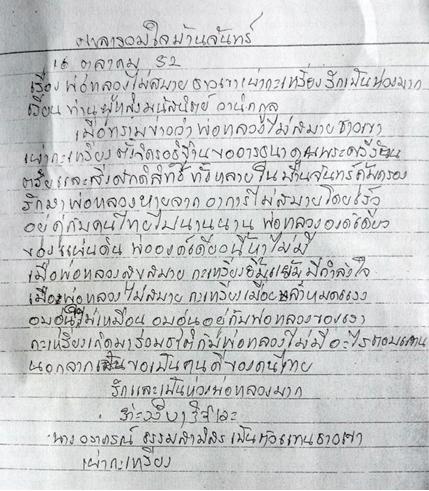 ศาลารวมใจบ้านจันทร์
16 ตุลาคม 52
เรื่อง พ่อหลวงไม่สบาย ชาวเขาเผ่ากะเหรี่ยง รักเป็นห่วงมาก
เรียน ท่านผู้หญิงมนัสนิตย์ วานิกกูล
เมื่อทราบข่าวว่า พ่อหลวงไม่สบาย ชาวเขา
เผ่ากะเหรี่ยง ตั้งจิตอธิฐานขออาราธนา คุณพระศรีรัตน
ตรัยและสิ่งศักดิ์สิทธิ์ ทั้งหลายใน บ้านจันทร์คุ้มครอง
รักษา พ่อหลวงหายจาก อาการไม่สบายโดยเร็ว
อยู่คู่กับคนไทยไปนานนาน พ่อหลวงองค์เดียว
ของแผ่นดิน พ่อองค์เดียวนี้หาไม่มี
เมื่อพ่อหลวงสุขสบาย กะเหรี่ยงยิ้มแย้ม มีกำลังใจ
เมื่อพ่อหลวงไม่สบาย กะเหรี่ยงเมื่อยล้าหมดแรง
อบอุ่นใดไม่เหมือน อบอุ่นอยู่กับพ่อหลวงของเรา
กะเหรี่ยงเกิดมาร่วมชาติกับพ่อหลวงไม่มีอะไรตอบแทน
นอกจากเป็นขอเป็นคนดีของคนไทย
รักและเป็นห่วงพ่อหลวงมาก
นาง อาภรณ์ ธรรมสามิสร เป็นตัวแทนชาวเขา
เผ่ากะเหรี่ยง